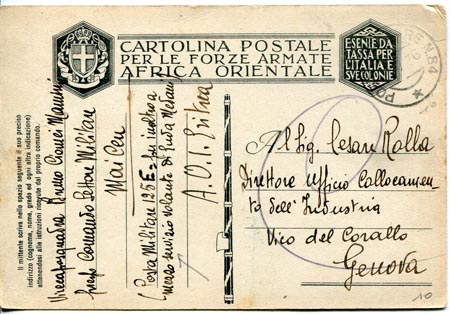 CARTOLINA POSTALE
PER LE FORZE ARMATE
AFRICA ORIENTALE
ESENTE DA
TASSA PER
L'ITALIA E
SVE COLONIE
Il mittente scriva nello spazio seguente il suo preciso
indirizzo (cognome, nome, grado ed ogni altra indicazione)
attenendosi alle istruzioni ricevute dal proprio comando.
Vicecaposquadra Bruno
presso Comando Settore Militare
Mai Ceu
Posta Militare 125 E.
servizio volante di
A. O. I. Eritrea
Al Sig. Cesare Rolla
Direttore Ufficio Collocamen-
to dell' Industria
Vico del Corallo
Genova
10